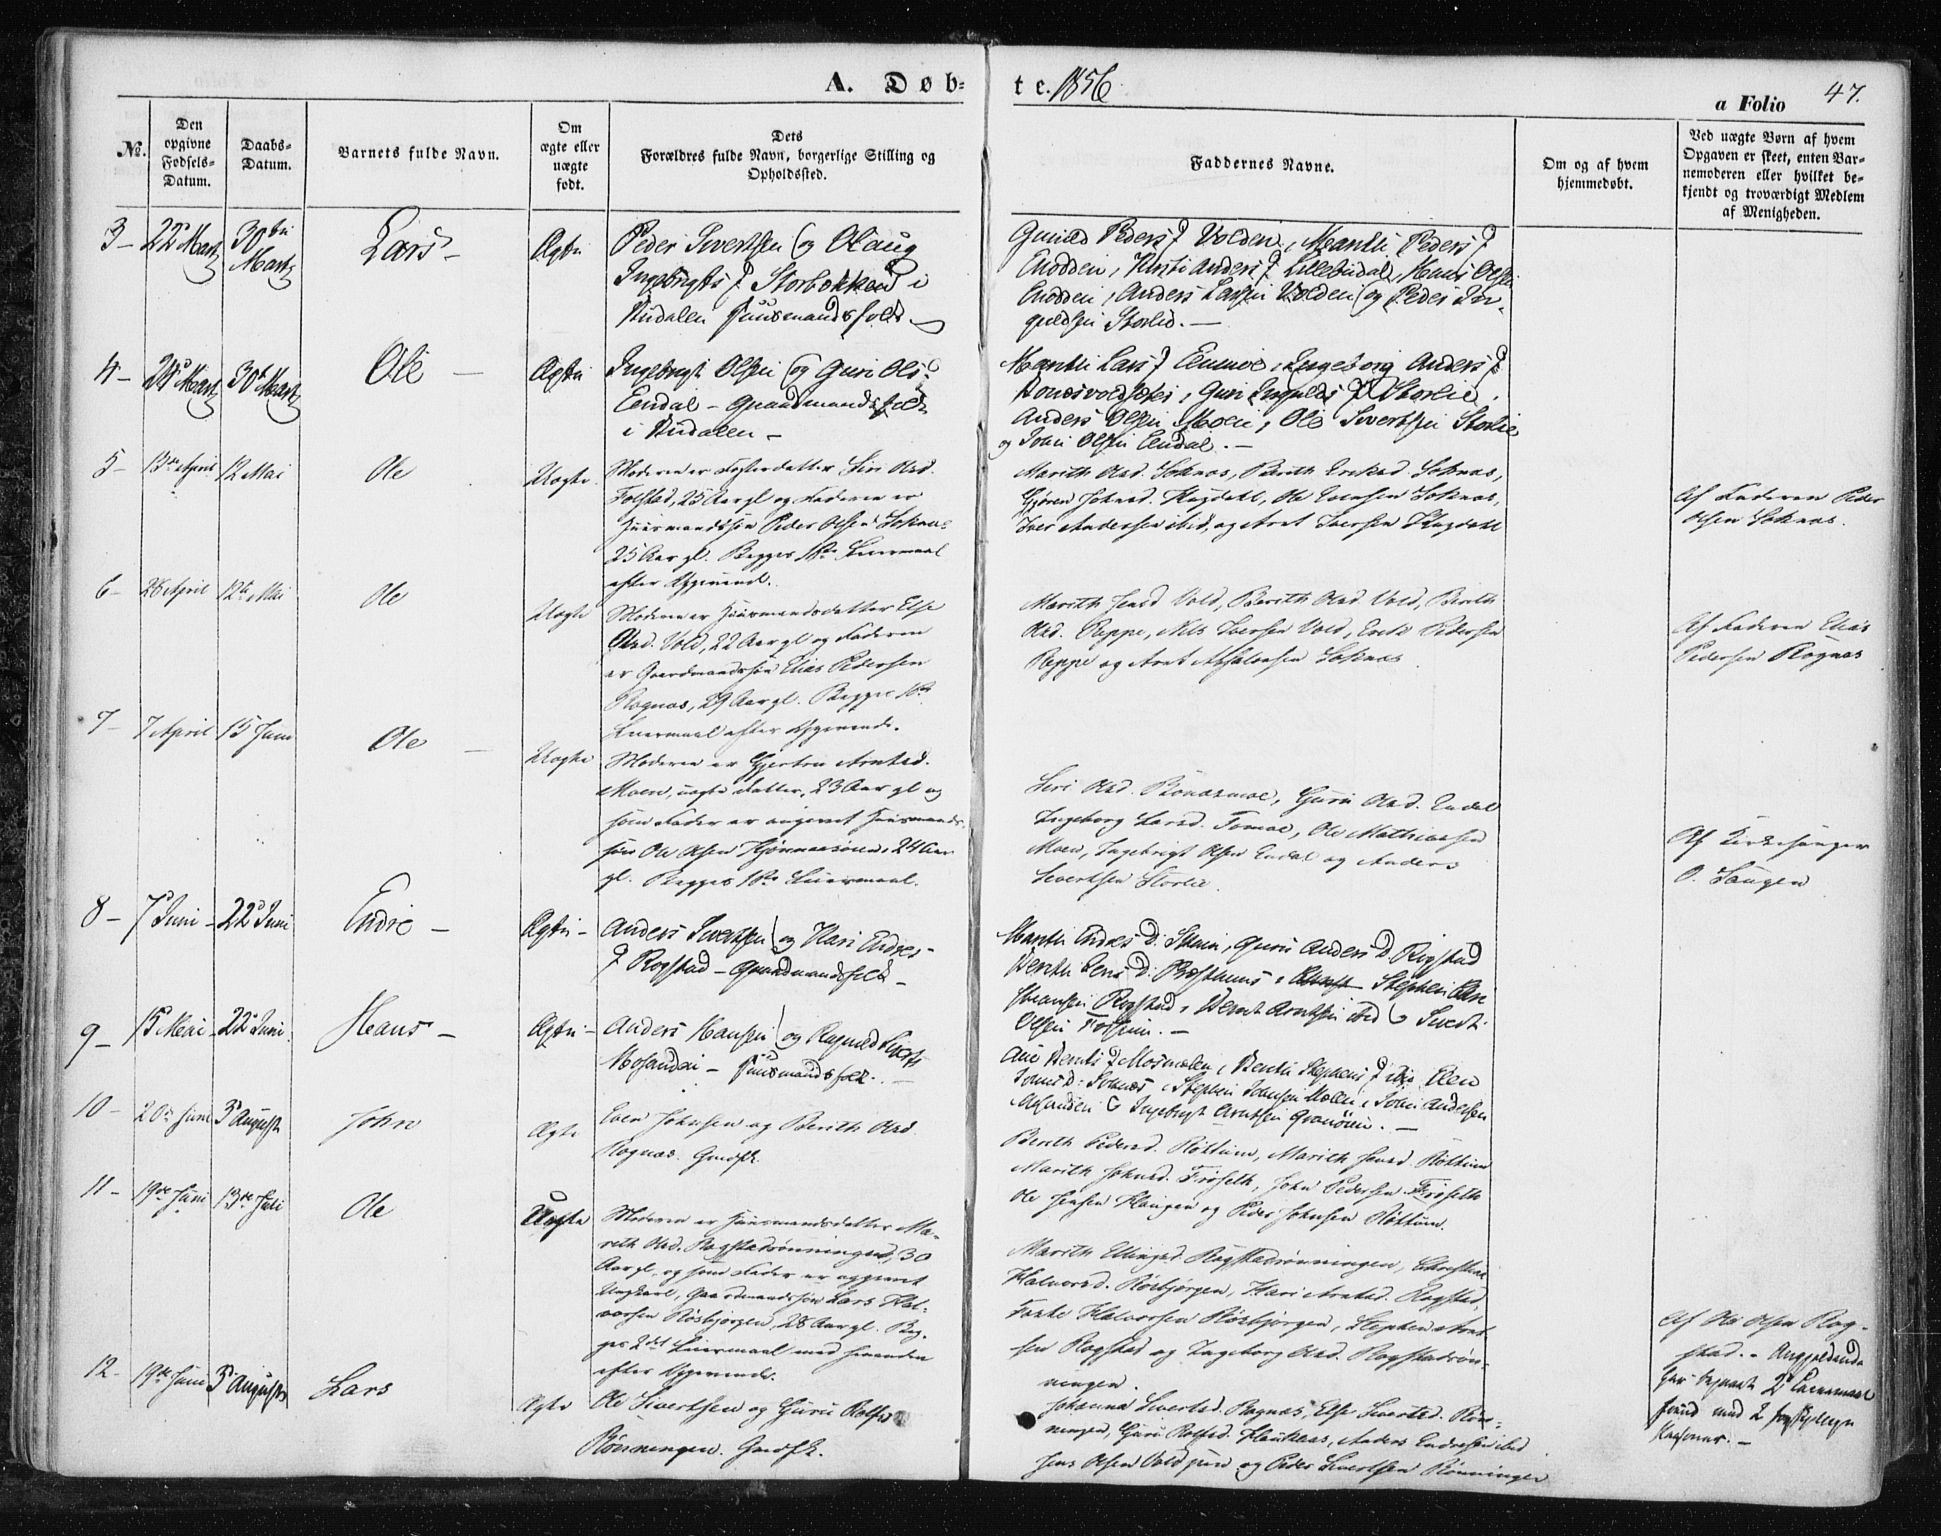 A. Døb-
te. 1856
a Folio 47.
No.
Den opgivne Fødsels-Datum.
Daabs-Datum.
Barnets fulde Navn.
Om ægte eller uægte født.
Dets Forældres fulde Navn, borgerlige Stilling og Opholdssted.
Faddernes Navne.
Om og af hvem hjemmedøbt.
Ved uægte Børn af hvem Opgaven er skeet, enten Barnemoderen eller hvilket bekjendt og troværdigt Medlem af Menigheden.
3 - 22 Martz 30 Martz Lars - Ægte
Peder Sivertsen og Olaug
Ingebrigts D Storbækken i
Budalen Huusmandsfolk -
Gunild Peders D Volden, Marith Peders D
Enodden, Kirsti Anders D Lillebudal, Hans Olsen
Enodden, Anders Larsen Volden og Peder In-
guldsen Storlid. -
4 - 24 Martz 30 Martz Ole - Ægte
Ingebrigt Olsen og Guri Ols D
Endal - Gaardmandsfolk
i Budalen -
Marith Lars D Enmoe, Ingeborg Anders D
Bonesvoldsæter, Guri Ingulds D Storlie,
Anders Olsen Moen, Ole Sivertsen Storlie
og John Olsen Endal. -
5 - 13 April 12 Mai Ole Uægte.
Moderen er Fosterdatter Siri Olsd.
Folstad, 25 Aar gl og Faderen er
Huusmandssøn Peder Olsen Soknæs
25 Aar gl. Begges 1ste Leiermaal
efter Opgivende.
Marith Olsd. Soknæs, Berith Eriksd. Soknæs,
Gjøren Johnsd. Hagdahl, Ole Evensen Soknæs,
Iver Andersen ibid, og Arnt Iversen Hagdahl
Af Faderen Peder
Olsen Soknæs.
6 - 28 April 12te Mai Ole Uægte
Moderen er Huusmandsdatter Else
Olsd. Vold, 22 Aar gl og Faderen
er Gaardmandssøn Elias Pedersen
Rognæs, 29 Aar gl. Begges 1ste
Leiermaal efter Opgivende.
Marith Jensd Vold, Berith Olsd. Vold, Berith
Olsd. Reppe, Nils Iversen Vold, Erik Pedersen
Reppe og Arnt Absalonsen Soknæs.
Af Faderen Elias
Pedersen Rognæs
7 - 7 April 15 Juni Ole - Uægte
Moderen er Gjertru Arntsd.
Moen, uægte Datter, 23 Aar gl og
som Fader er angivet Huusmands-
søn Ole Olsen Kjørnaasøien, 24 Aar
gl. Begges 1ste Leiermaal.
Siri Olsd. Bonesmoe, Guru Olsd. Endal
Ingeborg Larsd. Enmoe, Ole Mathiasen
Moen, Ingebrigt Olsen Endal og Anders
Sivertsen Storlie.
Af Kirkesanger
O. Haugen
8 - 7 Juni - 22 Juni Endre - Ægte -
Anders Sivertsen og Kari Endres-
D Rogstad - Gaardmandsfolk -
Marith Endres D: Svein, Guru Anders D Rogstad
Berith Jens D: , Stephen
Rogstad, Bernt Arntsen ibid & Sivert
Olsen . -
9 - 15 Mai - 22 Juni. Hans - Ægte -
Anders Hansen og Ragnild Siverts
Mosanden - Huusmandsfolk. -
Ane Bernts D Mosmælen, Berith Stephens D ibid, Elen
Johns D: Soknæs, Stephen Johnsen Moen, John Andersen
Mosanden & Ingebrigt Arntsen Granøien. -
10 - 20 Juni 3 August John Ægte
Even Johnsen og Berith Olsd.
Rognæs. Gmdfk.
Berith Pedersd. Røttum, Marith Jensd Røttum
Marith Johnsd. Frøseth, John Pedersen Frøseth
Ole Jensen Haugen og Peder Johnsen Røttum.
11 - 19de Juni 13de Juli Ole Uægte
Moderen er Huusmandsdatter Ma-
reth Olsd. Rogstadrønningen, 30
Aar gl, og som Fader er opgivet
Ungkarl, Gaardmandssøn Lars Hal-
vorsen Røsbjørgen, 28 Aar gl. Beg-
ges 2det Leiermaal med hinanden
efter Opgivende.
Marith Ellingsd Rogstadrønningen,
Halvorsd. Røsbjørgen, Kari Arntsd. Rogstad,
Halvorsen Røsbjørgen, Stephen Arnt
sen Rogstad og Ingeborg Olsd. Rogstadrøn-
ningen.
Af Ole Olsen Rog-
stad. - Angjeldende
har begaaet 2 Leiermaal
hver med 2 forskjellige
Personer. -
12 - 19de Juni 3 August Lars Ægte
Ole Sivertsen og Guru Rolfsd
Rønningen. Gmdfk.
Johanna Sivertsd. Rognæs, Else Sivertsd. Røn-
ningen, Guru Rolfsd. Haukaas, Anders Endresen ibid
Jens Olsen Vold og Peder Sivertsen Rønningen